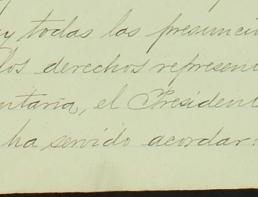 y todas las presunci
los derechos represen
ntaria, el Presiden
ha servido acordar: